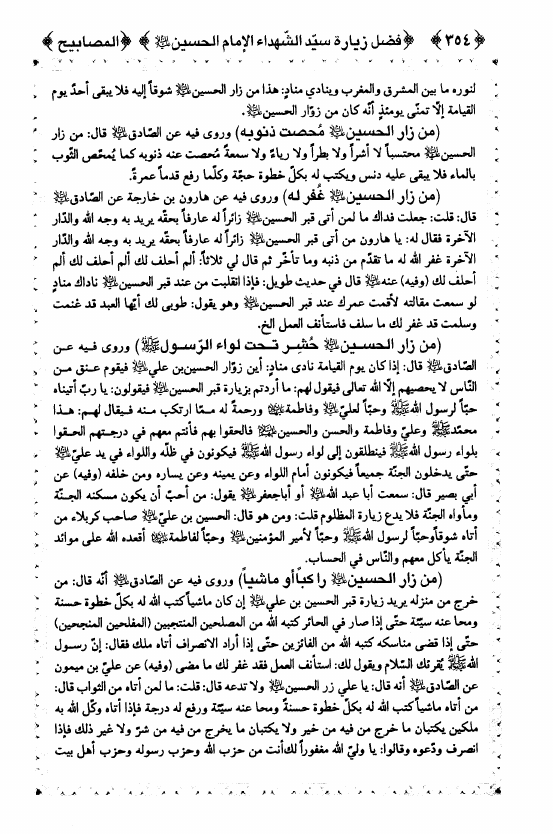 ﴿٣٥٤﴾ ﴿فضل زيارة سيّد الشّهداء الإمام الحسين ﵇﴾ ﴿المصابيح﴾
لنوره ما بين المشرق والمغرب وينادي منادٍ: هذا من زار الحسين ﵇ شوقاً إليه فلا يبقى أحدٌ يوم
القيامة إلّا تمنّى يومئذٍ أنّه كان من زوّار الحسين ﵇.
(من زار الحسين ﵇ مُحصت ذنوبه) وروى فيه عن الصّادق ﵇ قال: من زار
الحسين ﵇ محتسباً لا أشراً ولا بطراً ولا رياءً ولا سمعةً مُحصت عنه ذنوبه كما يُمحّص الثّوب
بالماء فلا يبقى عليه دنس ويكتب له بكلّ خطوة حجّة وكلّما رفع قدماً عمرةً.
(من زار الحسين ﵇ غُفر له) وروى فيه عن هارون بن خارجة عن الصّادق ﵇
قال: قلت: جعلت فداك ما لمن أتى قبر الحسين ﵇ زائراً له عارفاً بحقّه يريد به وجه الله والدّار
الآخرة فقال له: يا هارون من أتى قبر الحسين ﵇ زائراً له عارفاً بحقّه يريد به وجه الله والدّار
الآخرة غفر الله له ما تقدّم من ذنبه وما تأخّر ثم قال لي ثلاثاً: ألم أحلف لك ألم أحلف لك ألم
أحلف لك (وفيه) عنه ﵇ قال في حديث طويل: فإذا انقلبت من عند قبر الحسين ﵇ ناداك منادٍ
لو سمعت مقالته لأقمت عمرك عند قبر الحسين ﵇ وهو يقول: طوبى لك أيّها العبد قد غنمت
وسلمت قد غفر لك ما سلف فاستأنف العمل الخ.
(من زار الحسين ﵇ حُشِر تحت لواء الرّسول ﷺ) وروى فيه عن
الصّادق ﵇ قال: إذا كان يوم القيامة نادى منادٍ: أين زوّار الحسين بن علي ﵇ فيقوم عنق من
النّاس لا يحصيهم إلّا الله تعالى فيقول لهم: ما أردتم بزيارة قبر الحسين ﵇ فيقولون: يا ربّ أتيناه
حبّاً لرسول الله ﷺ وحبّاً لعليّ ﵇ وفاطمة ﵍ ورحمةً له ممّا ارتكب منه فيقال لهم: هذا
محمّد ﷺ وعليّ وفاطمة والحسن والحسين ﵈ فالحقوا بهم فأنتم معهم في درجتهم الحقوا
بلواء رسول الله ﷺ فينطلقون إلى لواء رسول الله ﷺ فيكونون في ظلّه واللواء في يد عليّ ﵇
حتّى يدخلون الجنّة جميعاً فيكونون أمام اللواء وعن يمينه وعن يساره ومن خلفه (وفيه) عن
أبي بصير قال: سمعت أبا عبد الله ﵇ أو أباجعفر ﵇ يقول: من أحبّ أن يكون مسكنه الجنّة
ومأواه الجنّة فلا يدع زيارة المظلوم قلت: ومن هو قال: الحسين بن عليّ ﵇ صاحب كربلاء من
أتاه شوقاً وحبّاً لرسول الله ﷺ وحبّاً لأمير المؤمنين ﵇ وحبّاً لفاطمة ﵍ أقعده الله على موائد
الجنّة يأكل معهم والنّاس في الحساب.
(من زار الحسين ﵇ راكباً أو ماشياً) وروى فيه عن الصّادق ﵇ أنّه قال: من
خرج من منزله يريد زيارة قبر الحسين بن علي ﵇ إن كان ماشياً كتب الله له بكلّ خطوة حسنة
ومحا عنه سيّئة حتّى إذا صار في الحائر كتبه الله من المصلحين المنتجبين (المفلحين المنجحين)
حتّى إذا قضى مناسكه كتبه الله من الفائزين حتّى إذا أراد الانصراف أتاه ملك فقال: إنّ رسول
الله ﷺ يُقرئك السّلام ويقول لك: استأنف العمل فقد غفر لك ما مضى (وفيه) عن عليّ بن ميمون
عن الصّادق ﵇ أنه قال: يا علي زر الحسين ﵇ ولا تدعه قال: قلت: ما لمن أتاه من الثواب قال:
من أتاه ماشياً كتب الله له بكلّ خطوة حسنةً ومحا عنه سيّئة ورفع له درجة فإذا أتاه وكّل الله به
ملكين يكتبان ما خرج من فيه من خير ولا يكتبان ما يخرج من فيه من شرّ ولا غير ذلك فإذا
انصرف ودّعوه وقالوا: يا وليّ الله مغفوراً لك أنت من حزب الله وحزب رسوله وحزب أهل بيت